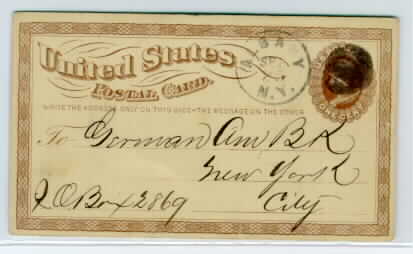 United States
POSTAL CARD.
ALBANY
N.Y.
WRITE THE ADDRESS ONLY ON THIS SIDE—THE MESSAGE ON THE OTHER
To German Am BK
New York
P.O Box 2869 City